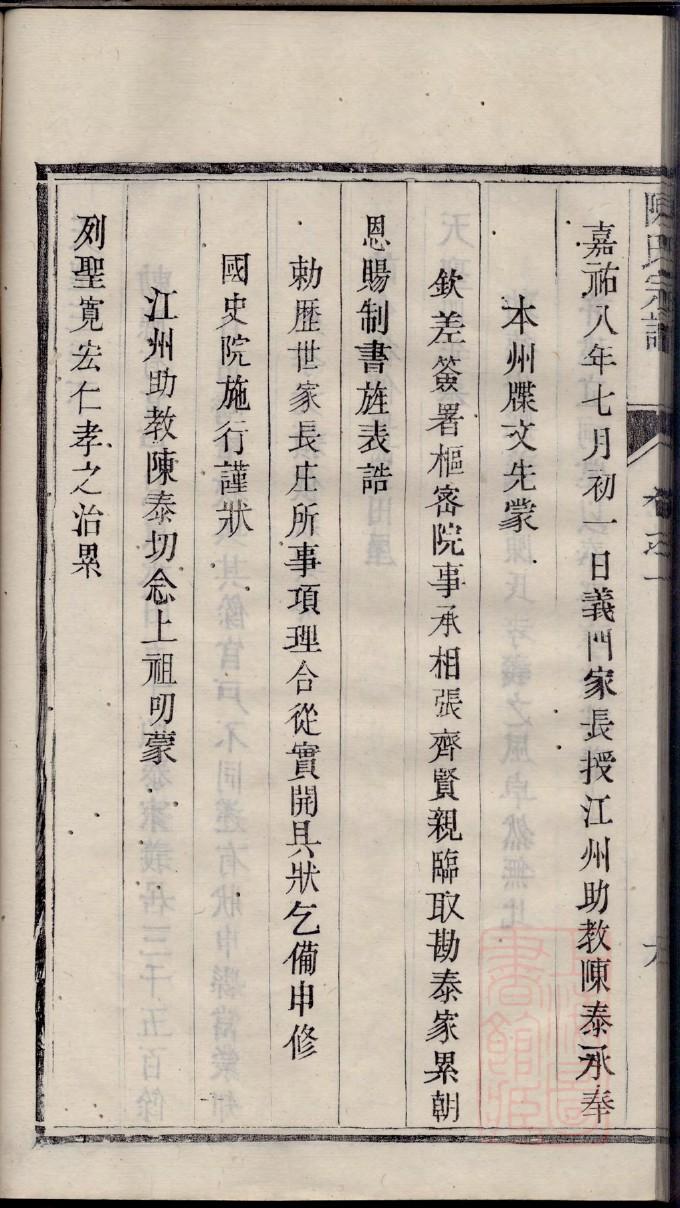 陳氏宗譜
卷之一
嘉祐八年七月初一日義門家長授江州助教陳泰承奉
本州牒文先蒙
欽差簽署樞密院事承相張齊賢親臨取勘泰家累朝
恩賜制書旌表誥
勅歷世家長庄所事項理合從實開具狀乞備申修
國史院施行謹狀
江州助教陳泰切念上祖叨蒙
列聖寬宏仁孝之治累